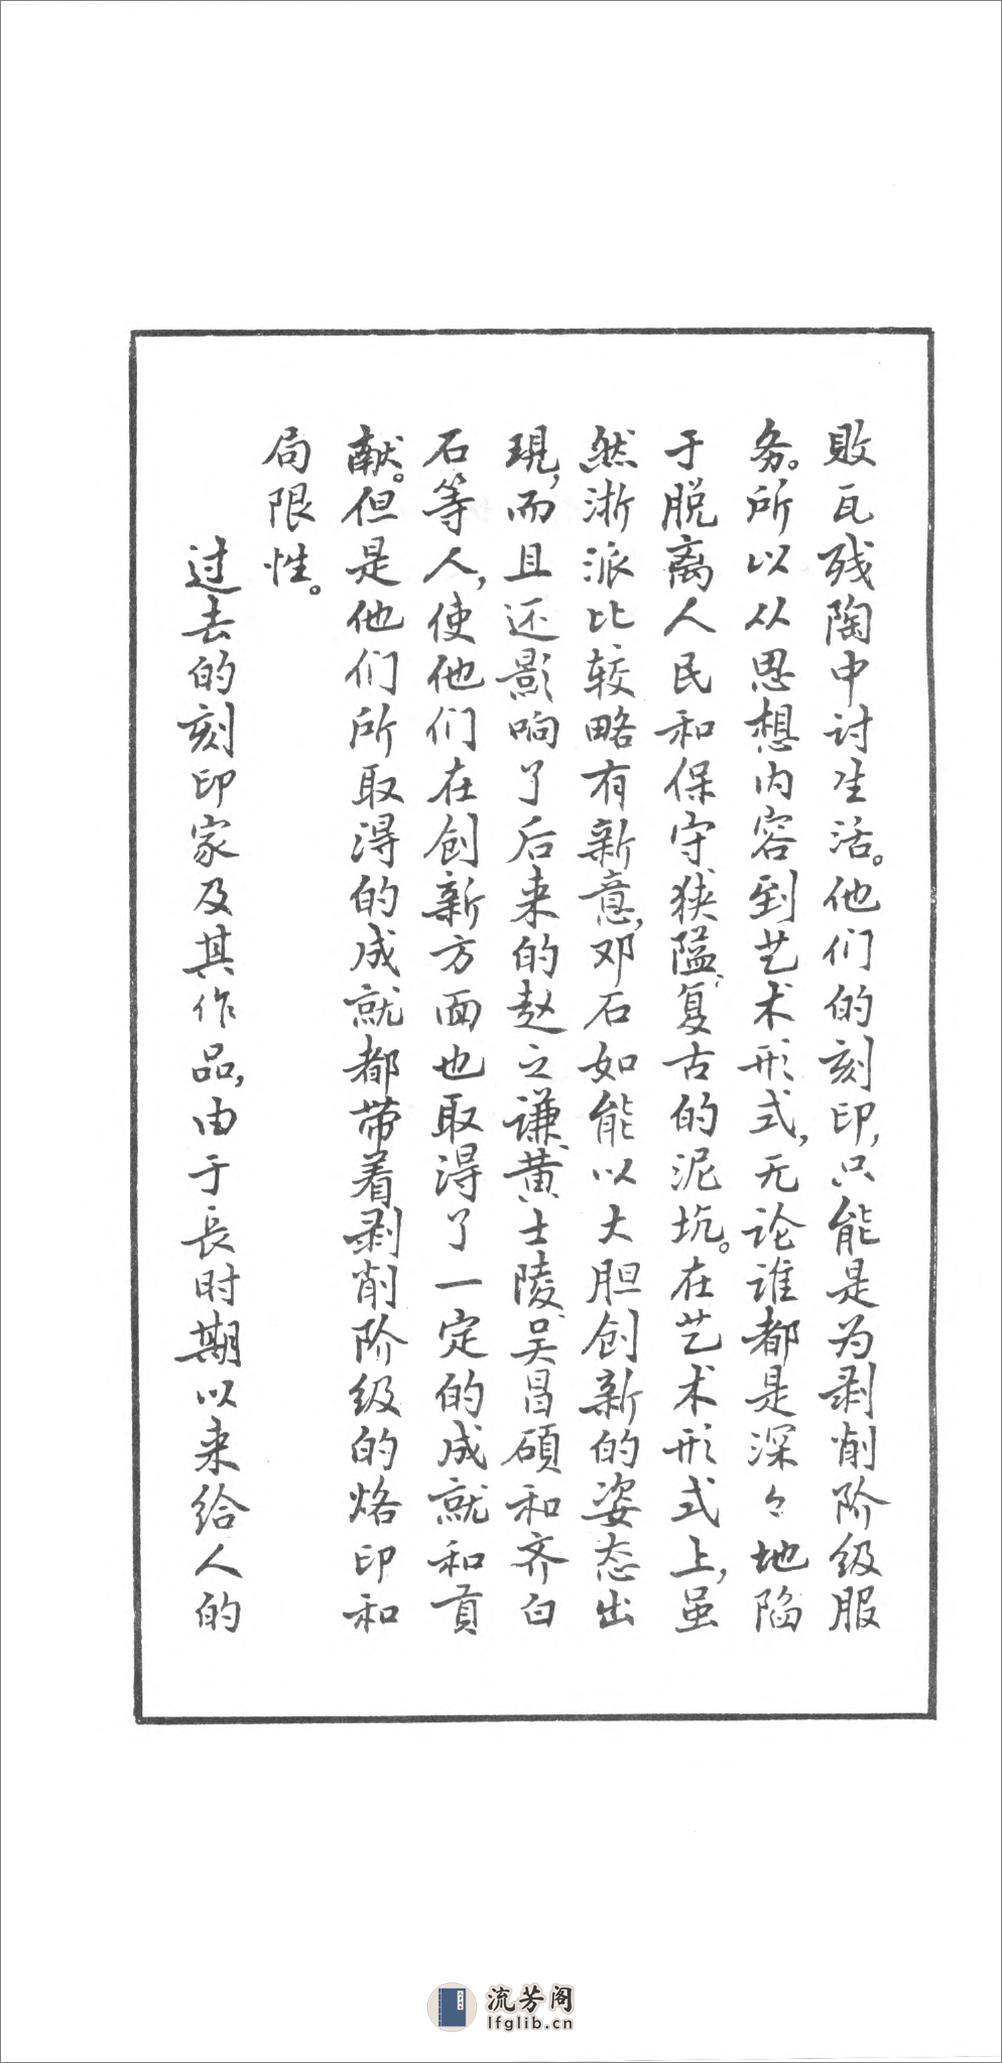 敗瓦残陶中讨生活。他们的刻印，只能是为剥削阶级服
务。所以从思想内容到艺术形式，无论谁都是深々地陷
于脱离人民和保守狭隘、复古的泥坑。在艺术形式上，虽
然浙派比较略有新意，邓石如能以大胆创新的姿态出
現，而且还影响了后来的赵之谦、黄士陵、吴昌碩和齐白
石等人，使他们在创新方面也取得了一定的成就和貢
献。但是他们所取得的成就都带着剥削阶级的烙印和
局限性。
过去的刻印家及其作品，由于長时期以来给人的
流芳阁
lfglib.cn